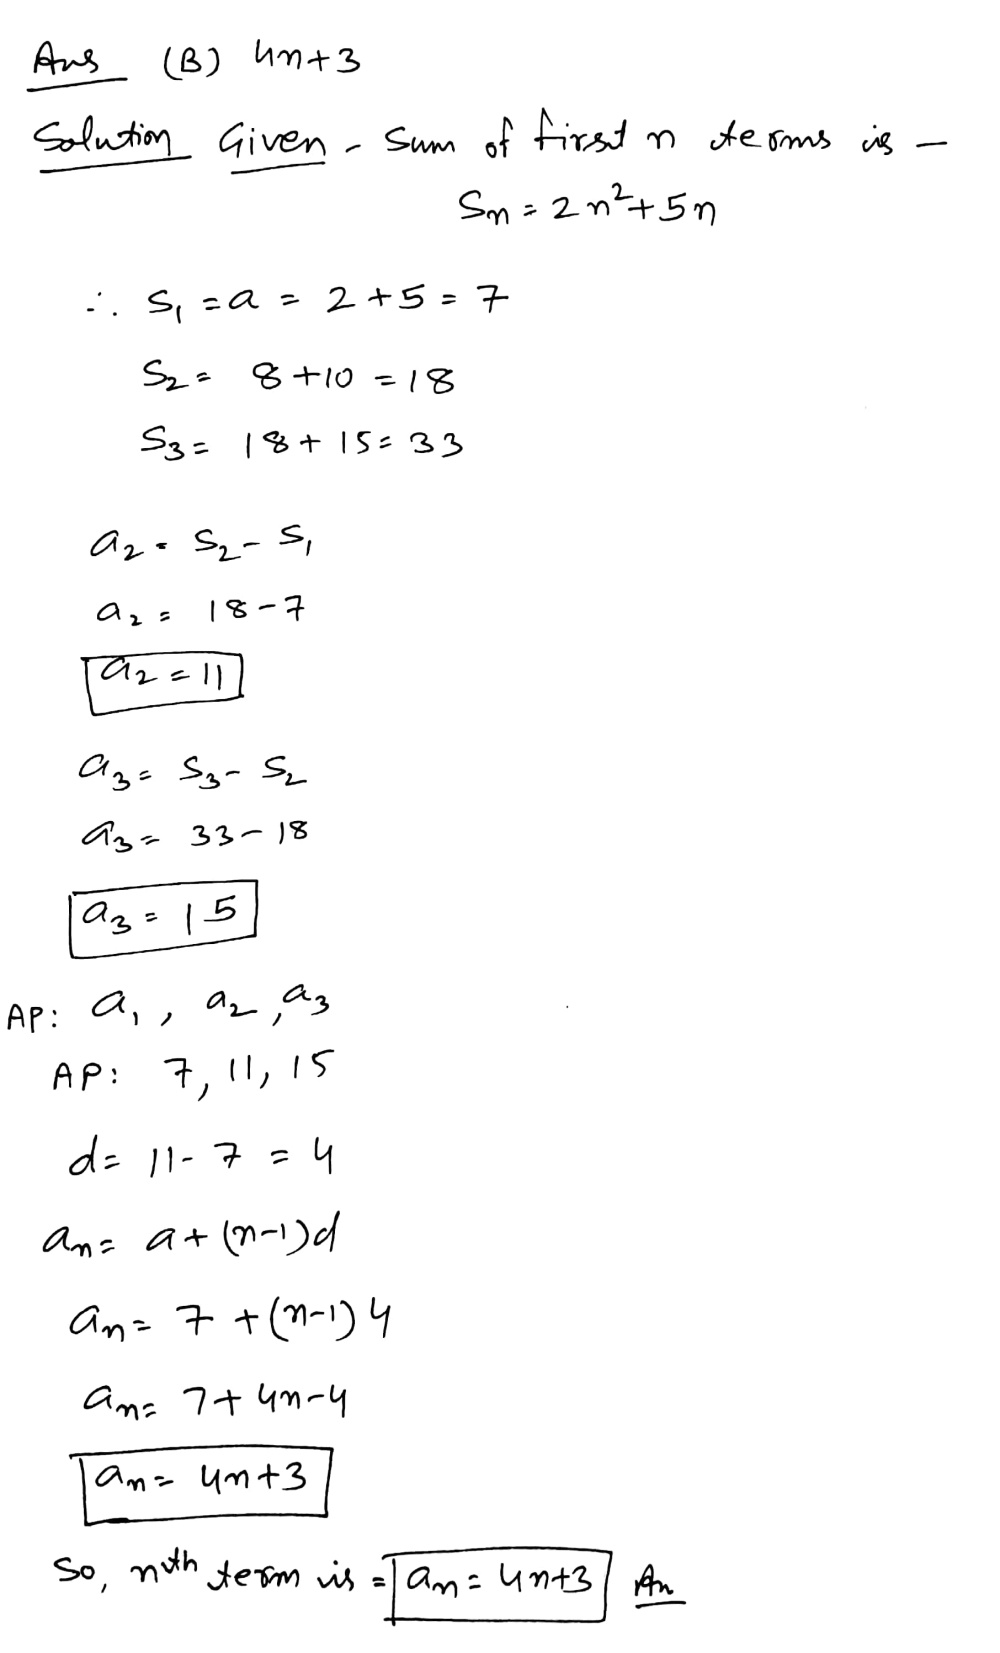 Ans (B) 4n+3
Solution Given - Sum of first n terms is -
Sn = 2n²+5n
∴ S₁ = a = 2+5 = 7
S₂ = 8+10 = 18
S₃ = 18+15 = 33
a₂ = S₂ - S₁
a₂ = 18-7
a₂ = 11
a₃ = S₃ - S₂
a₃ = 33-18
a₃ = 15
AP: a₁, a₂, a₃
AP: 7, 11, 15
d = 11-7 = 4
an = a+(n-1)d
an = 7+(n-1)4
an = 7+4n-4
an = 4n+3
So, nth term is = an = 4n+3 An